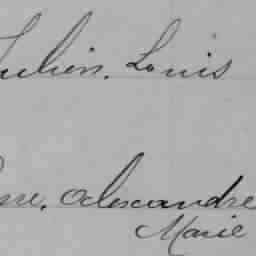 Julien, Louis
Alexandre
Marie